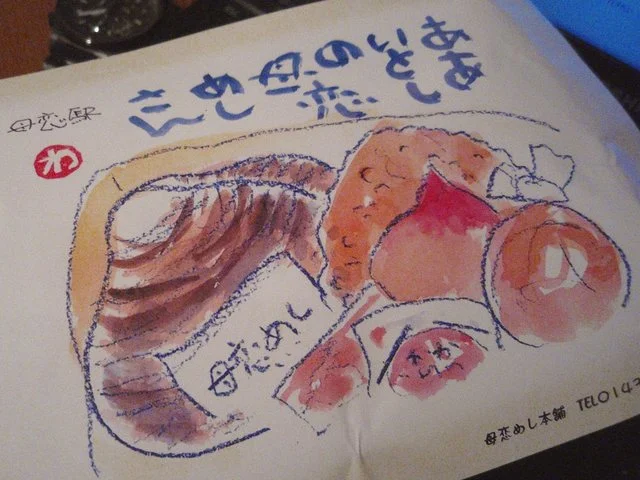 ああ
いとし
の
母恋
めし
さん
母恋駅
わ
母恋めし
母恋めし本舗 TEL0143